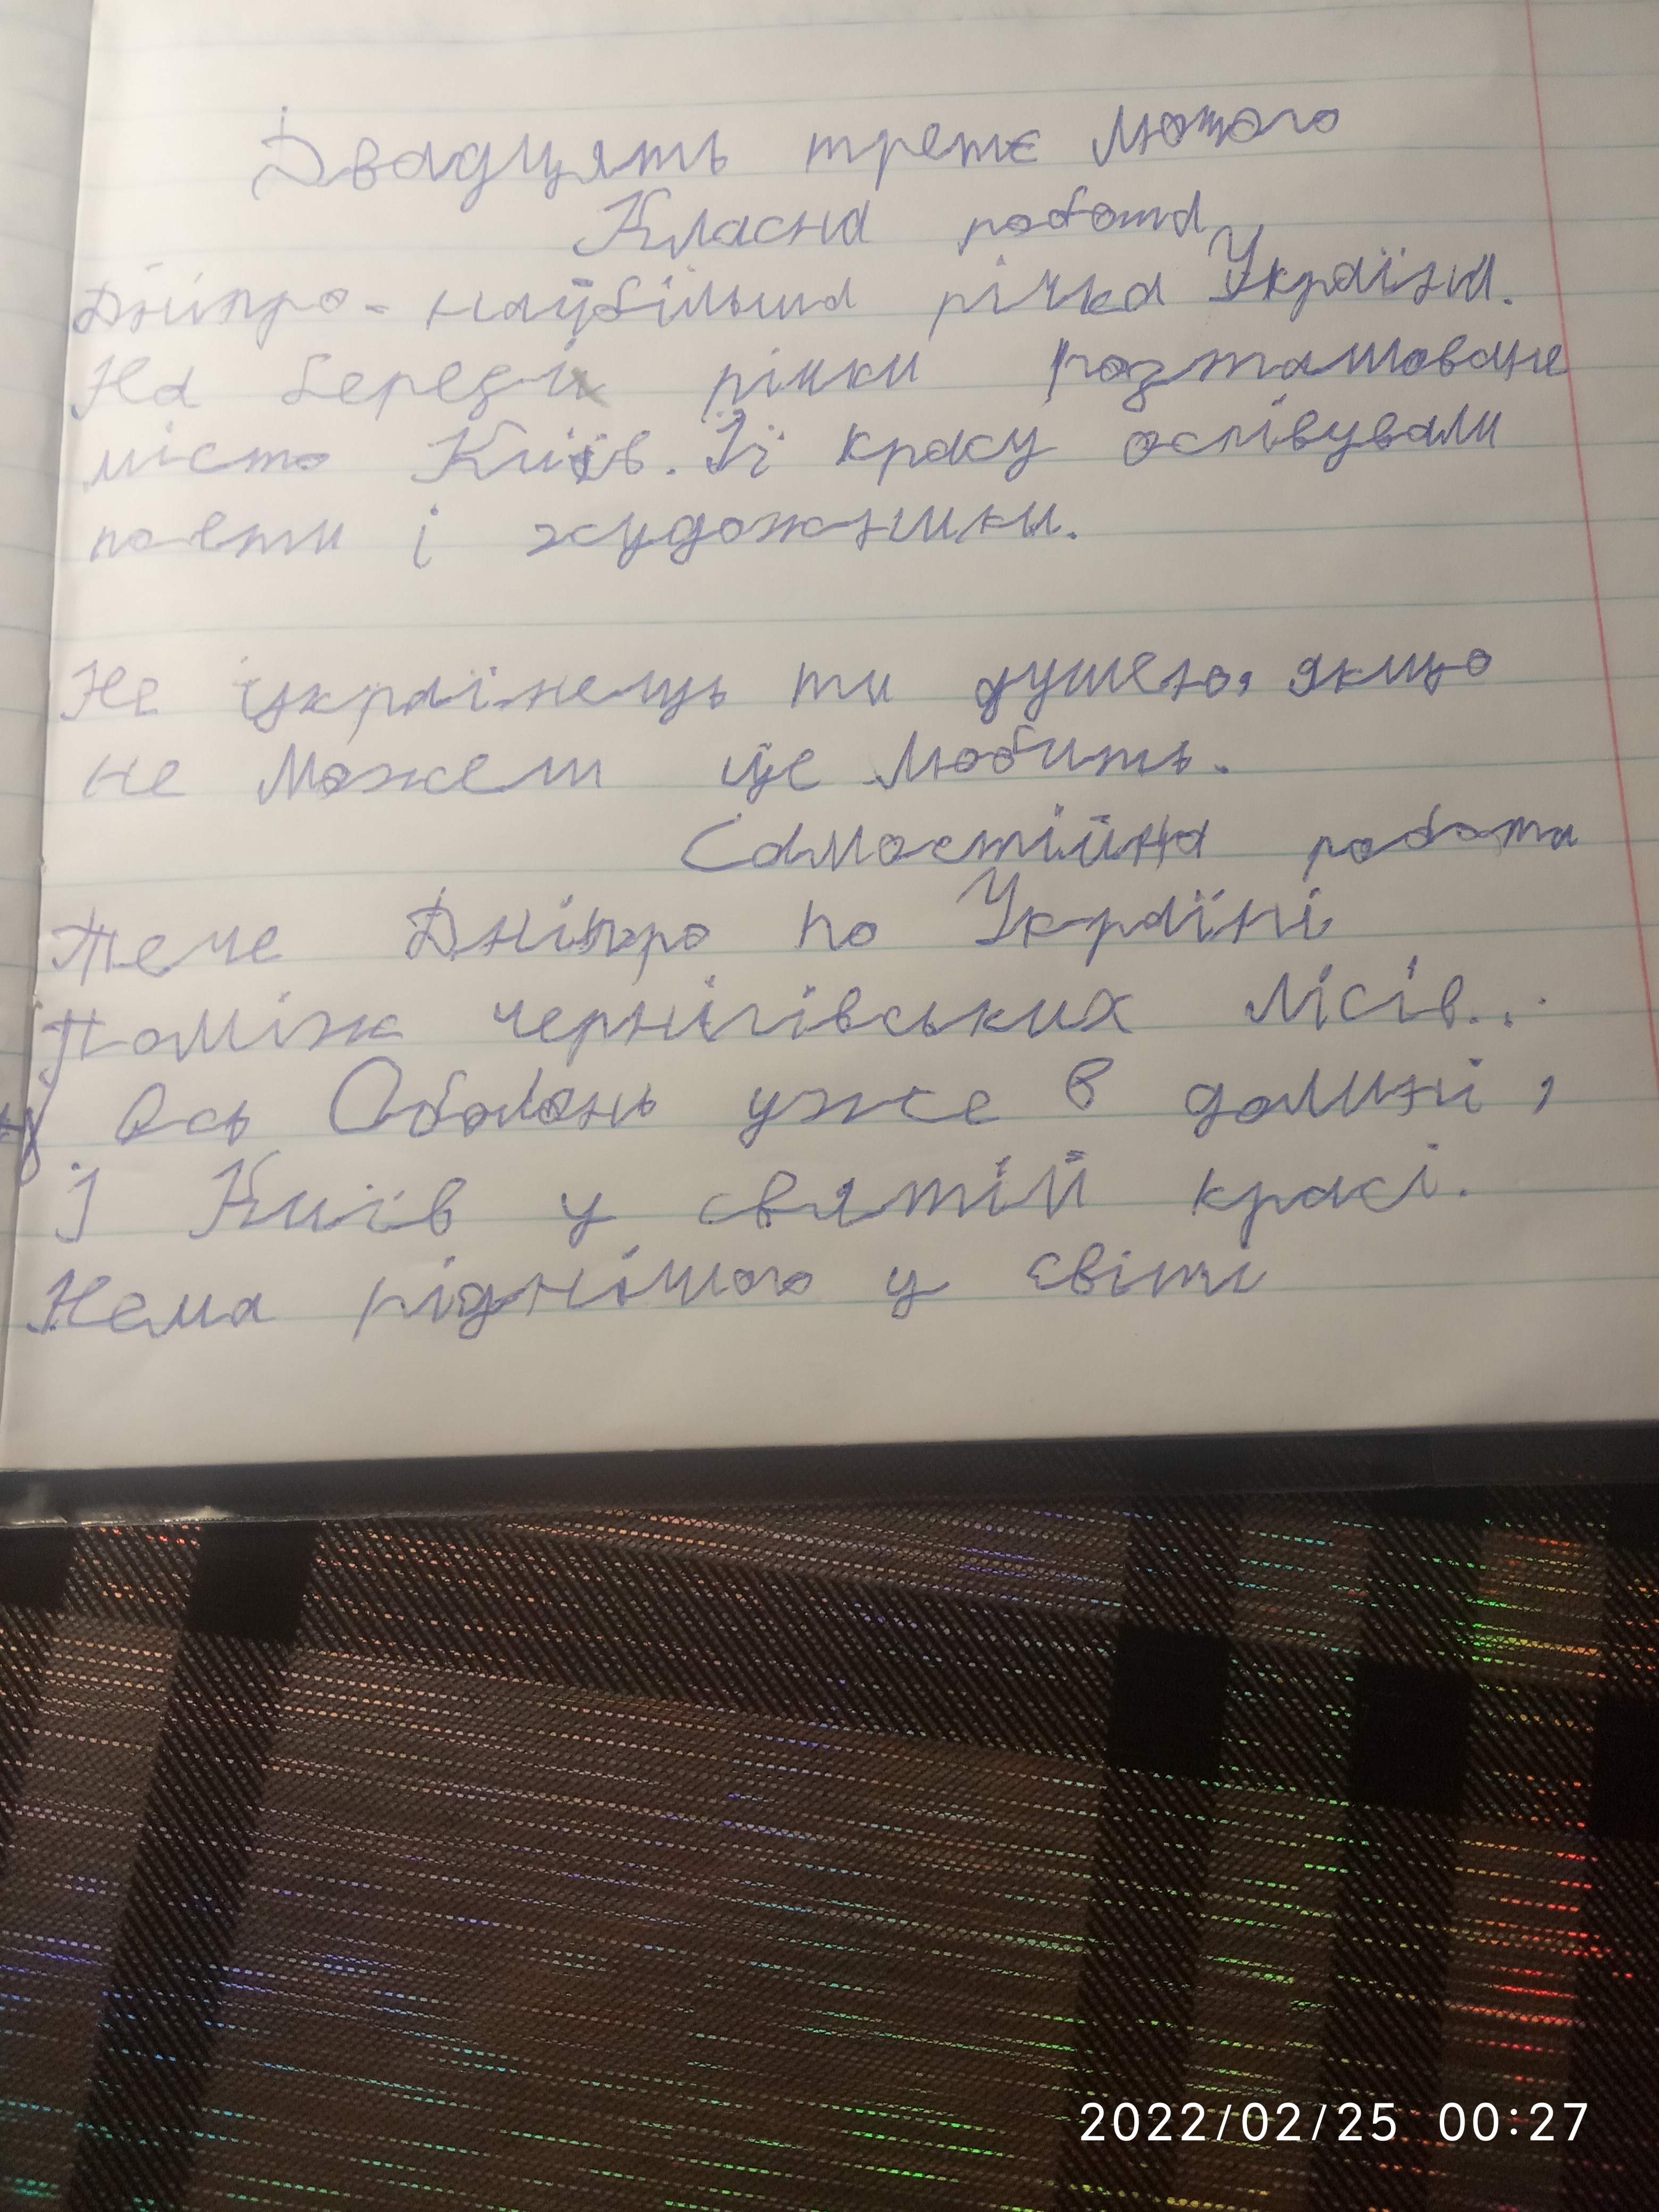 Двадцять третє лютого
Класна робота
Дніпро - найбільша річка Україна.
На березі річки розташоване
місто Київ. Її красу оспівували
поети і художники.
Не українець ти душею, якщо
не можеш це любить.
Самостійна робота
Тече Дніпро по Україні
Поміж чернігівських лісів..
Ось Оболонь уже в долині,
І Київ у святій красі.
Нема ріднішого у світі
2022/02/25 00:27